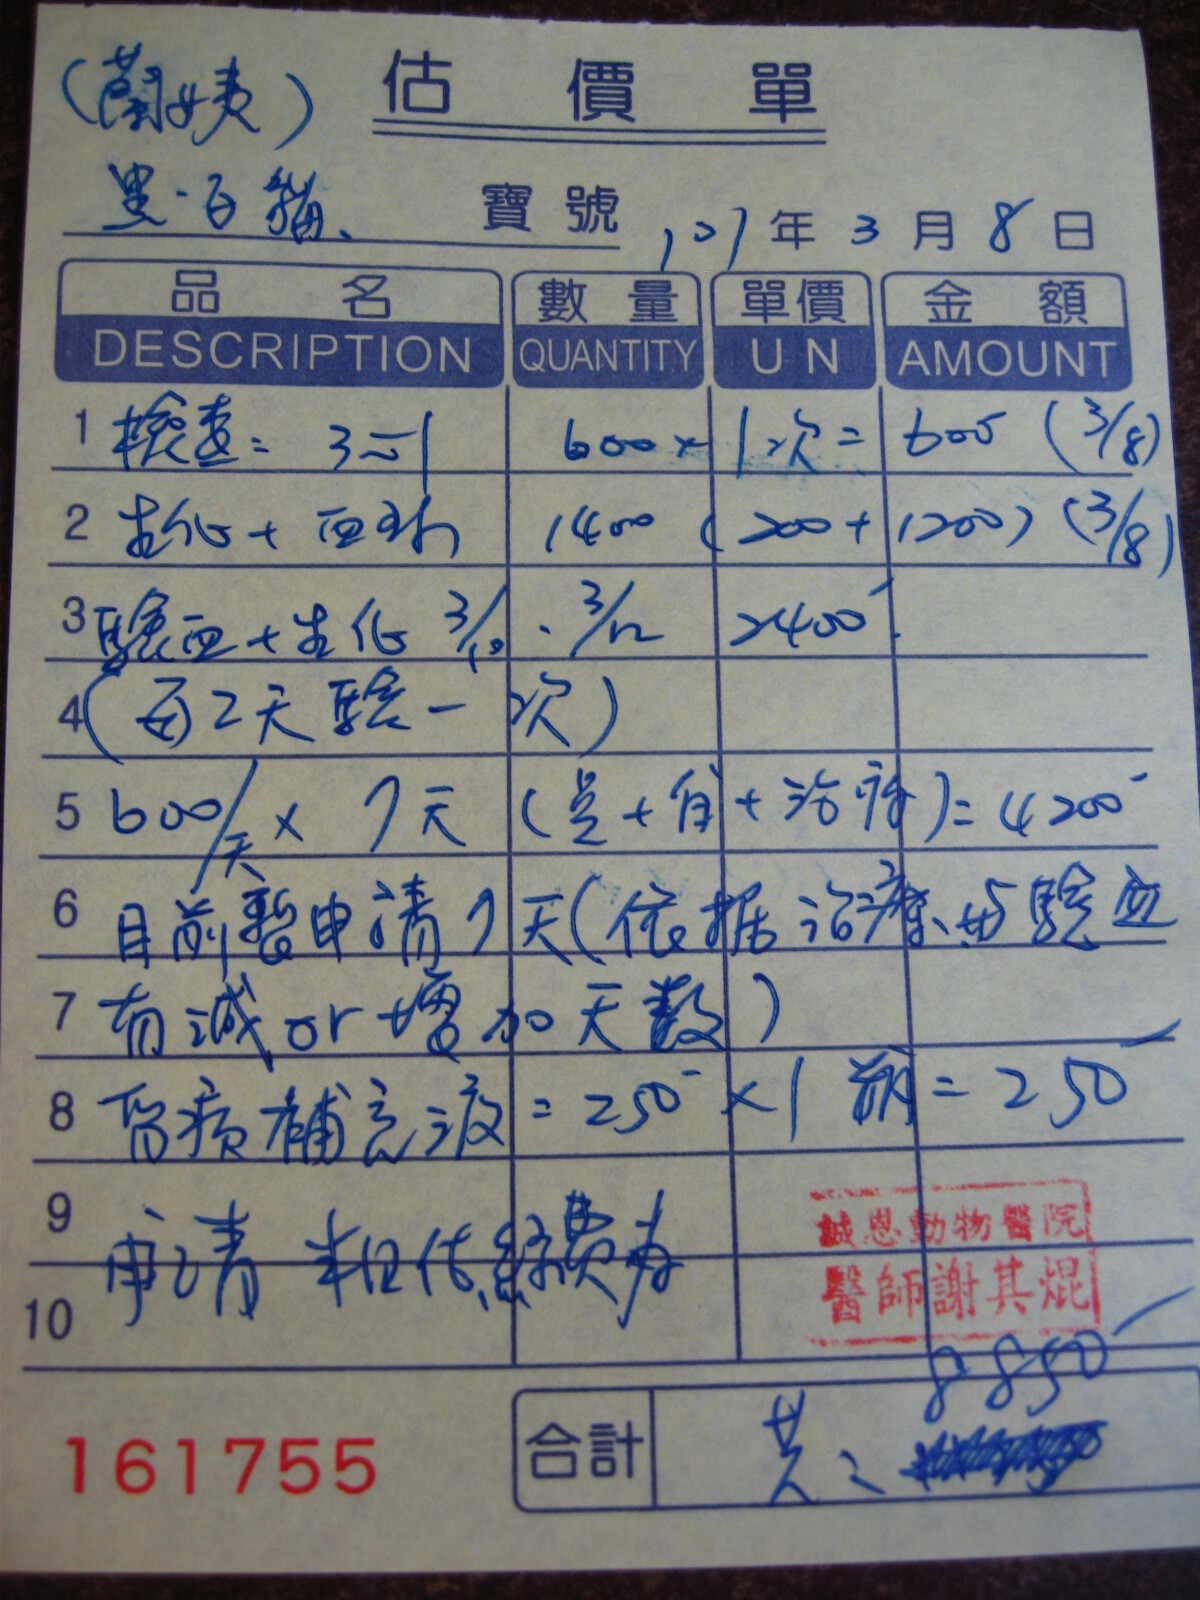 (蘭姨) 估價單
黑.白貓、 寶號 107年3月8日
品名 數量 單價 金額
DESCRIPTION QUANTITY U N AMOUNT
1 檢查= 3合1 600× 1次= 600 (3/8)
2 生化+血球 1400 (200+1200) (3/8)
3 驗血+生化 3/10.3/12 2400
4 (每2天驗一次)
5 600/天 × 7天 (点+食+治療)= 4200
6 目前暫申請7天(依据治療与驗血
7 有減or增加天數)
8 腎病補充液 = 250 ×1瓶 = 250
9 申請 經費
10
誠恩動物醫院
醫師謝其焜
8850
合計 共:
161755